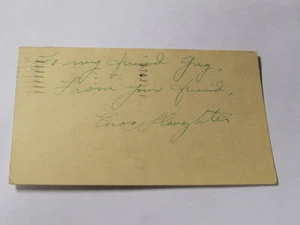 To my friend Greg,
From your friend,
Enos Slaughter